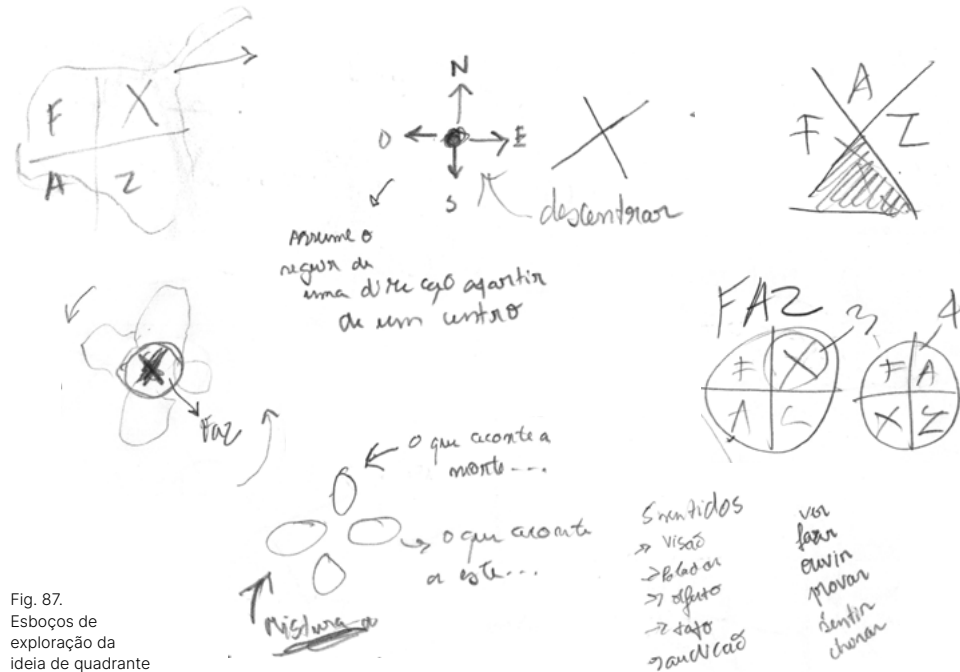 F X
A Z
N
O E
S
descentrar
Assume o
seguir de
uma direcção apartir
de um centro
A
F Z
FAZ
3 4
F X
A
F A
X Z
X
Faz
o que aconte a
morte....
o que aconte
a este...
Mistura
5 sentidos
visão
Paladar
olfato
tato
audição
ver
fazer
ouvir
provar
sentir
chorar
Fig. 87.
Esboços de
exploração da
ideia de quadrante